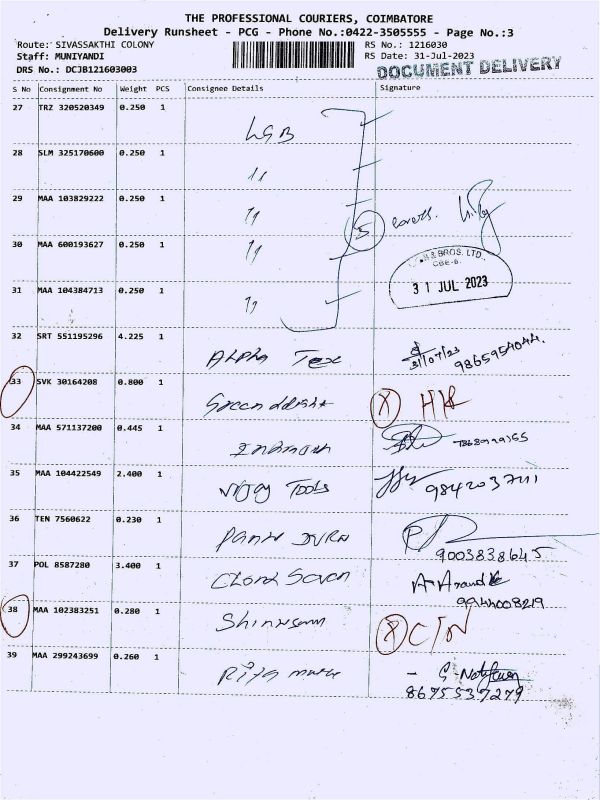 THE PROFESSIONAL COURIERS, COIMBATORE
Delivery Runsheet - PCG - Phone No.:0422-3505555 - Page No.:3
Route: SIVASSAKTHI COLONY RS No.: 1216030
Staff: MUNIYANDI RS Date: 31-Jul-2023
DRS No.: DCJB121603003 DOCUMENT DELIVERY
S No Consignment No Weight PCS Consignee Details Signature
27 TRZ 320520349 0.250 1 LGB
28 SLM 325170600 0.250 1 11
29 MAA 103829222 0.250 1 11
5 covers.
30 MAA 600193627 0.250 1 11
& BROS. LTD.,
CBE-6.
31 JUL 2023
31 MAA 104384713 0.250 1 11
32 SRT 551195296 4.225 1 Alpha Tex 31/07/23 9865954044.
33 SVK 30164208 0.800 1 Green X
34 MAA 571137200 0.445 1
35 MAA 104422549 2.400 1 Vijay Tools 9842037411
36 TEN 7560622 0.230 1
9003838645
37 POL 8587280 3.400 1 Cloud Seven A Anand
9944008219
38 MAA 102383251 0.280 1 X C/N
39 MAA 299243699 0.260 1
8675537279